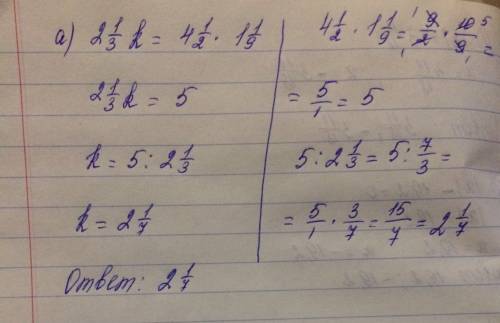 а) 2 1/3 k = 4 1/2 · 1 1/9
2 1/3 k = 5
k = 5 : 2 1/3
k = 2 1/7
Ответ: 2 1/7
4 1/2 · 1 1/9 = 9/2 · 10/9 = 1 1 5 1
= 5/1 = 5
5 : 2 1/3 = 5 : 7/3 =
= 5/1 · 3/7 = 15/7 = 2 1/7